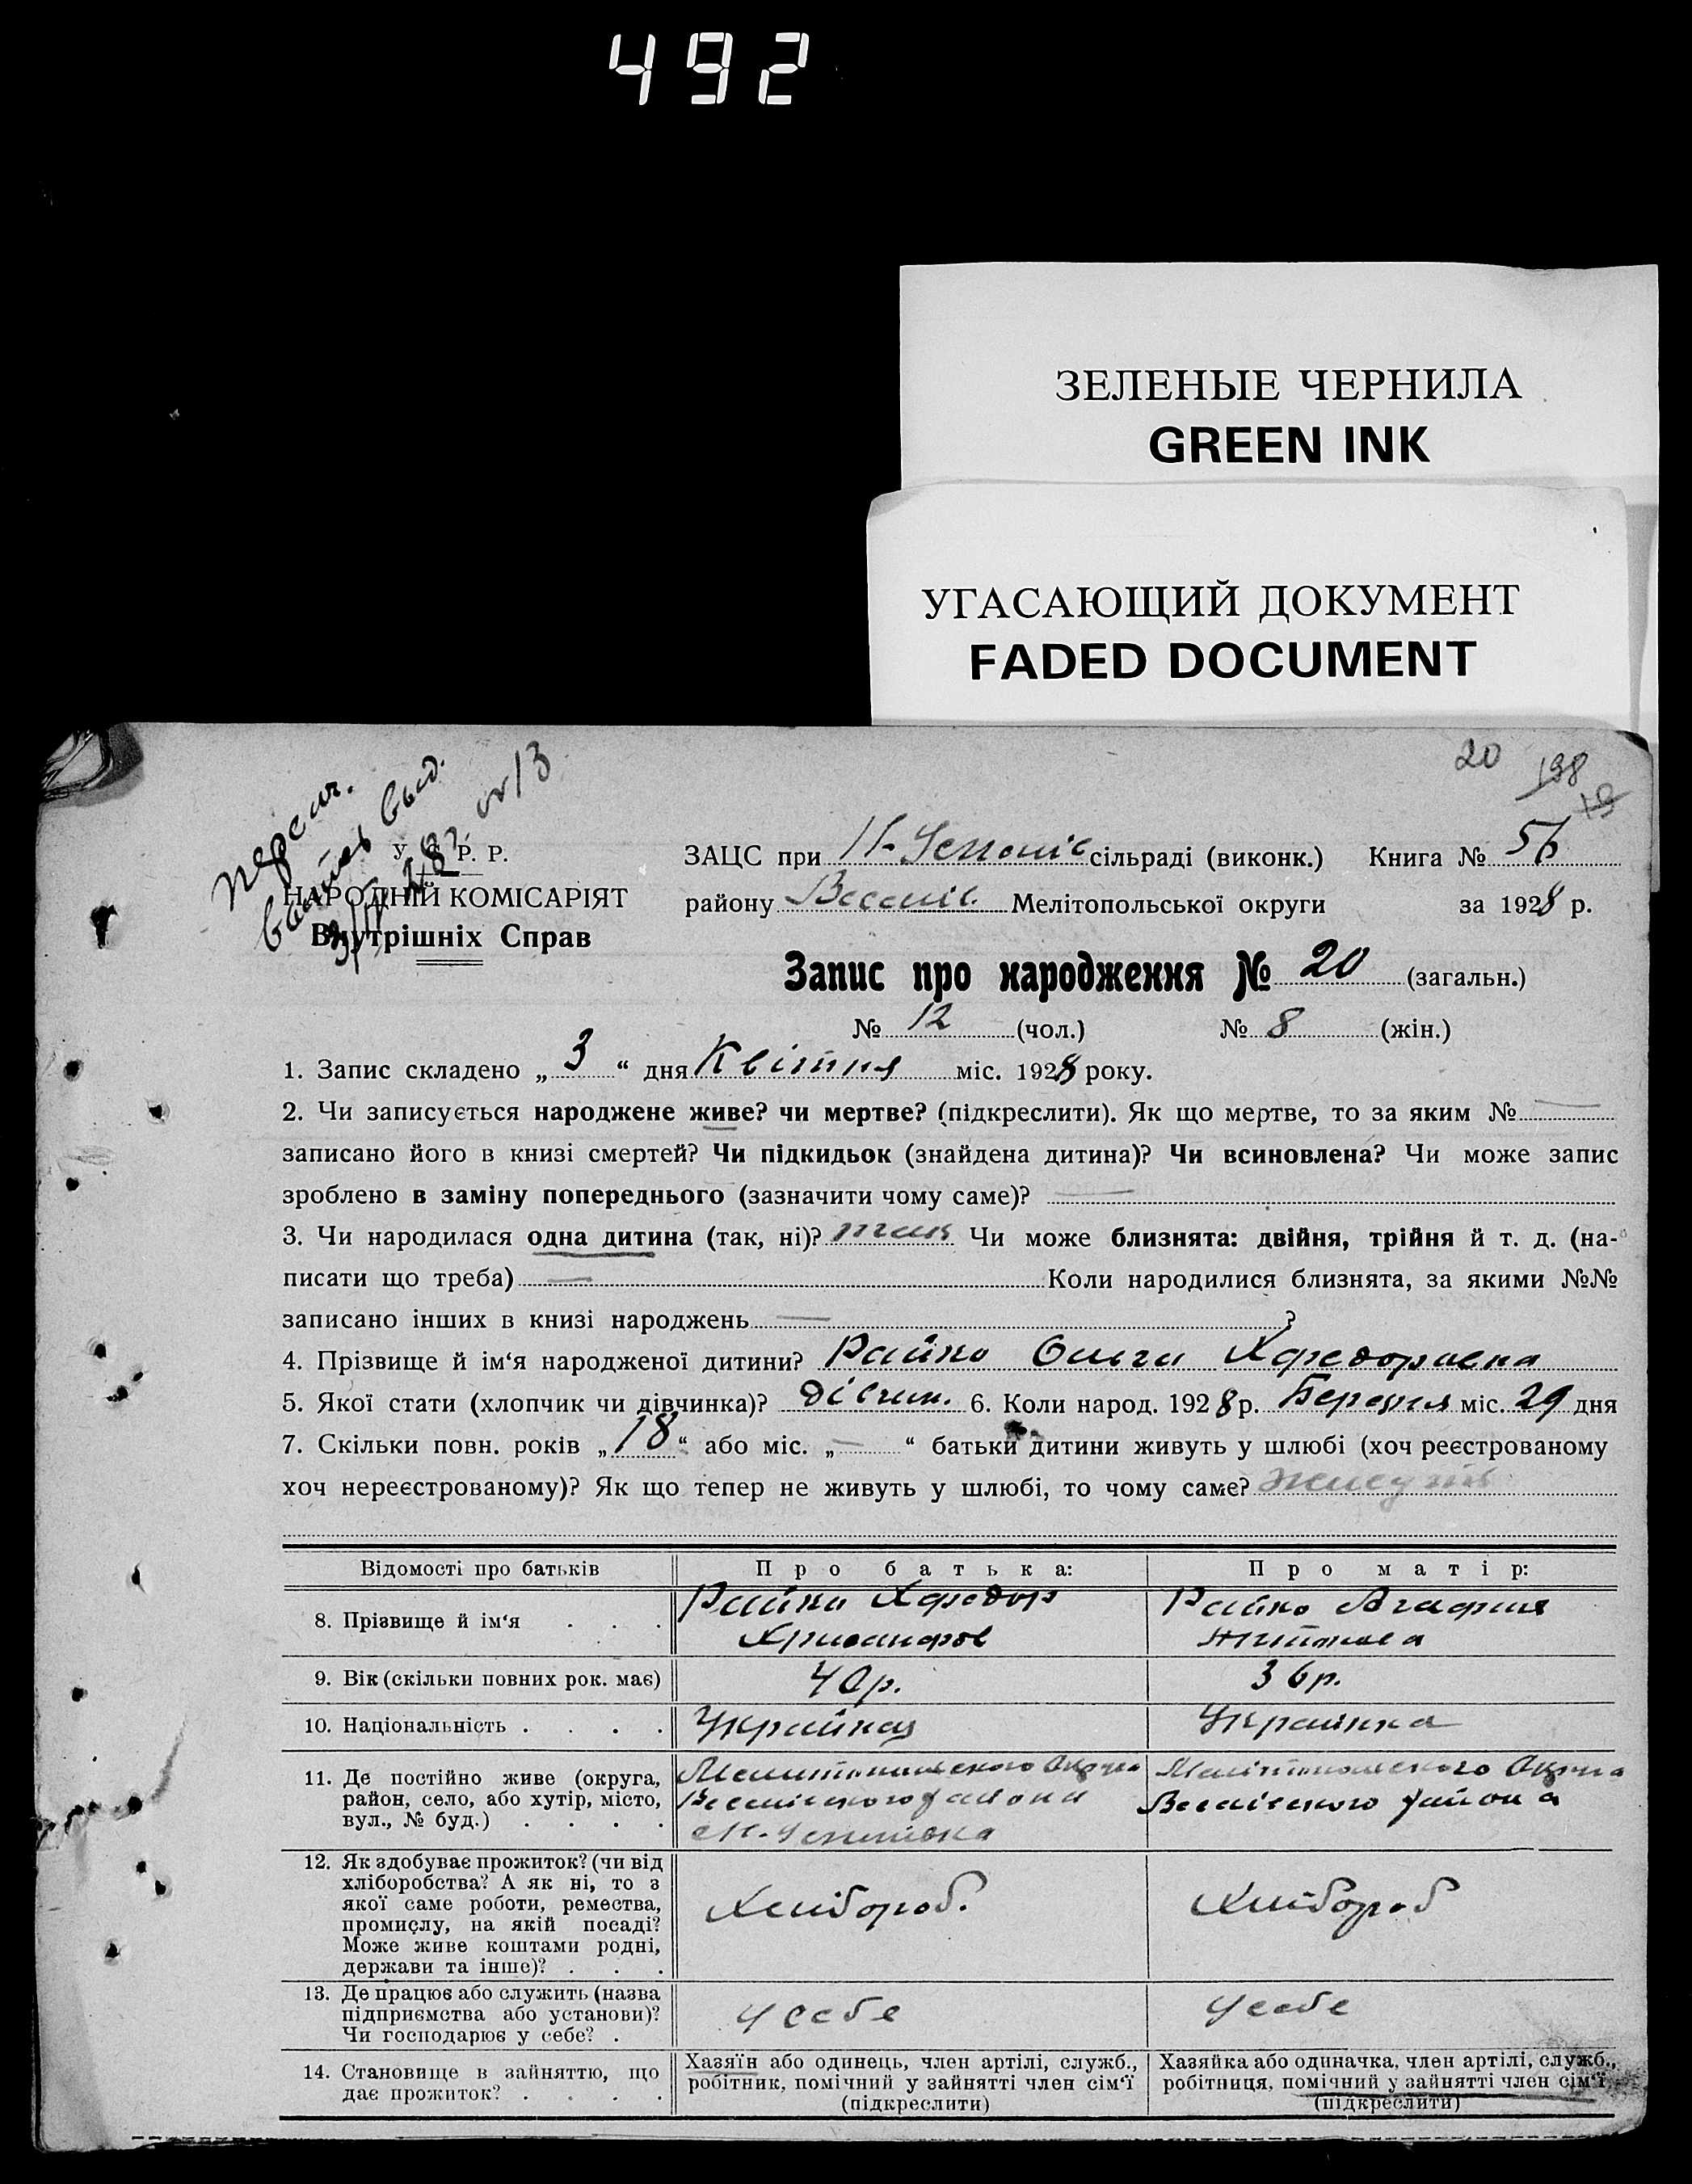 492
ЗЕЛЕНЫЕ ЧЕРНИЛА
GREEN INK
УГАСАЮЩИЙ ДОКУМЕНТ
FADED DOCUMENT
20 198
19
У. С. Р. Р.
НАРОДНІЙ КОМІСАРІЯТ
Внутрішніх Справ
ЗАЦС при сільраді (виконк.) Книга № 56
району Веселів. Мелітопольської округи за 1928 р.
Запис про народження № 20 (загальн.)
№ 12 (чол.) № 8 (жін.)
1. Запис складено „ 3 “ дня Квітня міс. 1928 року.
2. Чи записується народжене живе? чи мертве? (підкреслити). Як що мертве, то за яким № —
записано його в книзі смертей? Чи підкидьок (знайдена дитина)? Чи всиновлена? Чи може запис
зроблено в заміну попереднього (зазначити чому саме)? —
3. Чи народилася одна дитина (так, ні)? так Чи може близнята: двійня, трійня й т. д. (на-
писати що треба) — Коли народилися близнята, за якими №№
записано інших в книзі народжень — ?
4. Прізвище й ім‘я народженої дитини? Райко Ольга Хфедоровна
5. Якої стати (хлопчик чи дівчинка)? дівчин. 6. Коли народ. 1928 р. Березня міс. 29 дня
7. Скільки повн. років „ 18 “ або міс. „ — “ батьки дитини живуть у шлюбі (хоч реєстрованому
хоч нереєстрованому)? Як що тепер не живуть у шлюбі, то чому саме? живуть
Відомості про батьків Про батька: Про матір:
8. Прізвище й ім‘я . . . Райко Хфедор Райко Агафия
9. Вік (скільки повних рок. має) 40 р. 36 р.
10. Національність . . . . Украинка
11. Де постійно живе (округа, район, село, або хутір, місто, вул., № буд.) . . . .
Веселівського района Веселівського района
12. Як здобуває прожиток? (чи від хліборобства? А як ні, то з якої саме роботи, ремества, промислу, на якій посаді? Може живе коштами родні, держави та інше)? . . . Хлібороб. Хлібороб
13. Де працює або служить (назва підприємства або установи)? Чи господарює у себе? . У себе У себе
14. Становище в зайняттю, що дає прожиток? . . . . Хазяїн або одинець, член артілі, служб., робітник, помічний у зайнятті член сім‘ї (підкреслити) Хазяйка або одиначка, член артілі, служб., робітниця, помічний у зайнятті член сім‘ї (підкреслити)